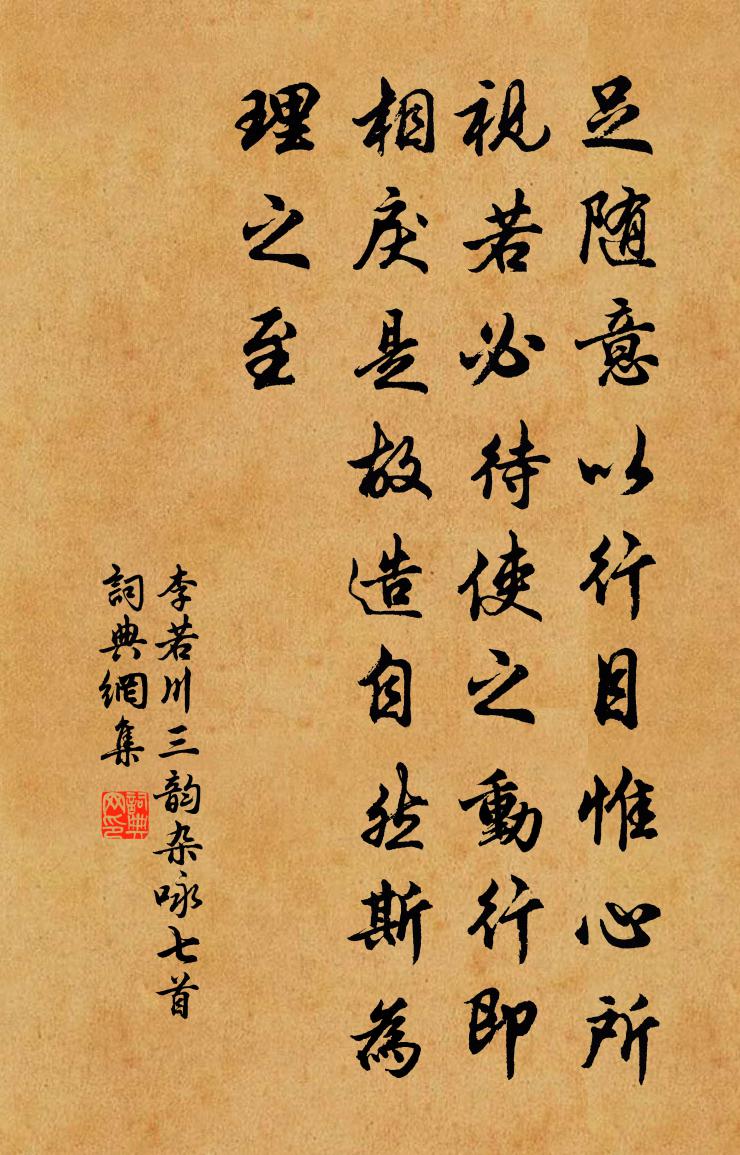 足随意以行目惟心所
視若必待使之動行即
相戾是故造自然斯為
理之至
李若川三韵杂咏七首
詞典網集
詞典
网印